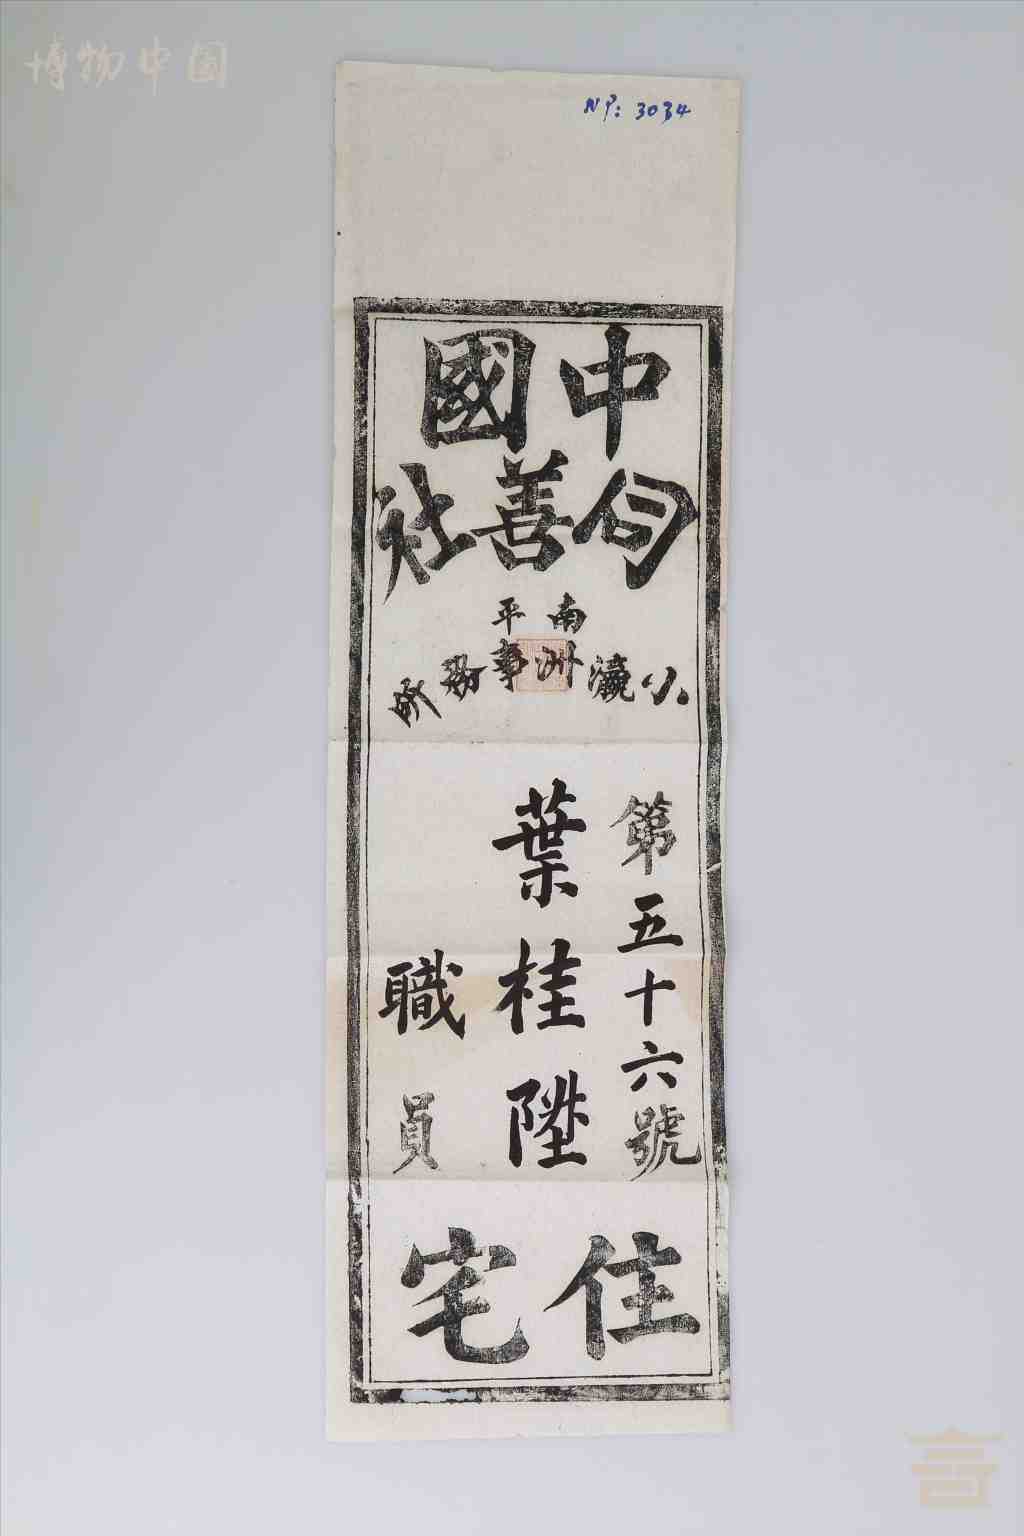 博物中国
Nº: 3034
中國
同善社
南平
小瀛洲事務所
第五十六號
葉桂陞
職員
住宅